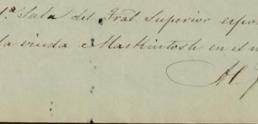 1ª Sala del Tral. Superior espon
la viuda Mackintosh en el n